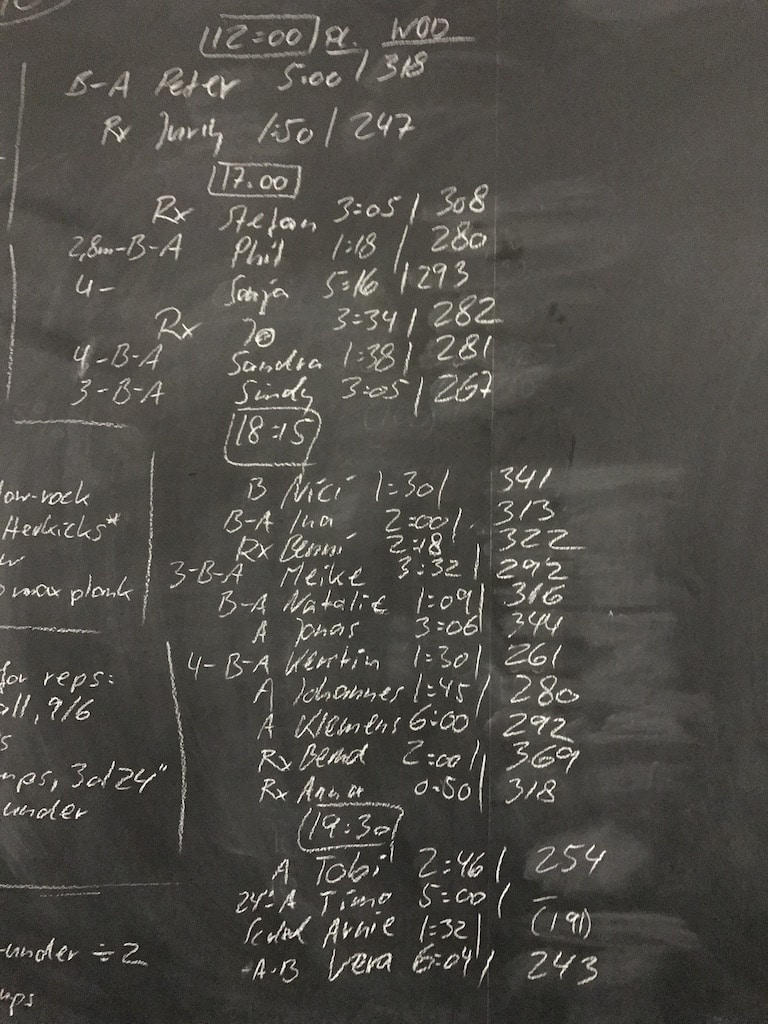 12:00 Pl. WOD
B-A Peter 5:00 / 318
Rx 1:50 / 247
17.00
Rx Stefan 3:05 / 308
2,8m-B-A Phil 1:18 / 280
4- Sonja 5:16 / 293
Rx Jo 3:34 / 282
4-B-A Sandra 1:38 / 281
3-B-A Sindy 3:05 / 267
18:15
B Nici 1:30 / 341
B-A Ina 2:00 / 313
Rx Benni 2:18 / 322
3-B-A Meike 3:32 / 292
B-A Natalie 1:09 / 316
A Jonas 3:06 / 344
4-B-A Kerstin 1:30 / 261
A Johannes 1:45 / 280
A Klemens 6:00 / 292
Rx Bernd 2:00 / 369
Rx Anna 0:50 / 318
19:30
A Tobi 2:46 / 254
24"-A Timo 5:00 / –
Arnie 1:32 / (191)
-A-B Vera 6:04 / 243
low-rock
Herkicks*
max plank
for reps:
all, 9/6
mps, 30/24"
under
-under ÷ 2
mps